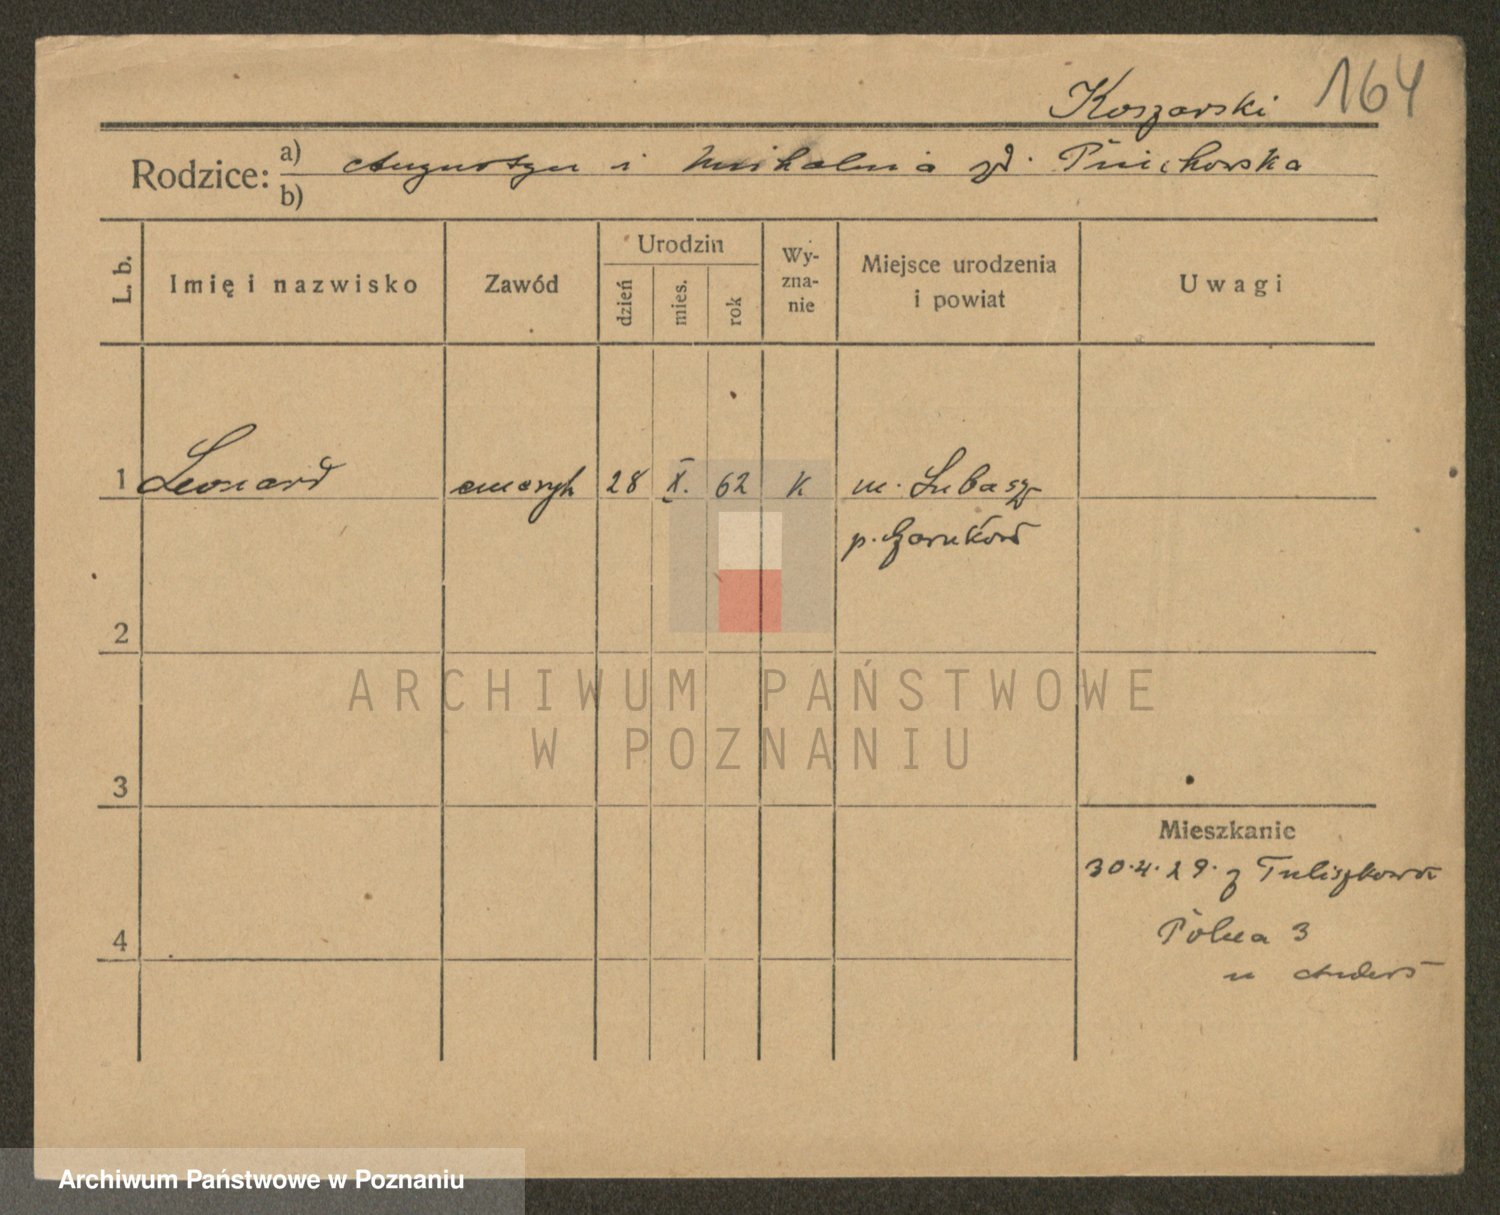 164
Koszarski
Rodzice: a) Augustyn i Michalina zd.
b)
L. b.
Imię i nazwisko
Zawód
Urodzin
dzień
mies.
rok
Wy-
zna-
nie
Miejsce urodzenia
i powiat
Uwagi
1 Leonard emeryt 28 X. 62 K m. Lubasz
p. Czarnków
2
3
4
Mieszkanie
30.4.29. z Tuliszkowa
Polna 3
u Anders
ARCHIWUM PAŃSTWOWE
W POZNANIU
Archiwum Państwowe w Poznaniu